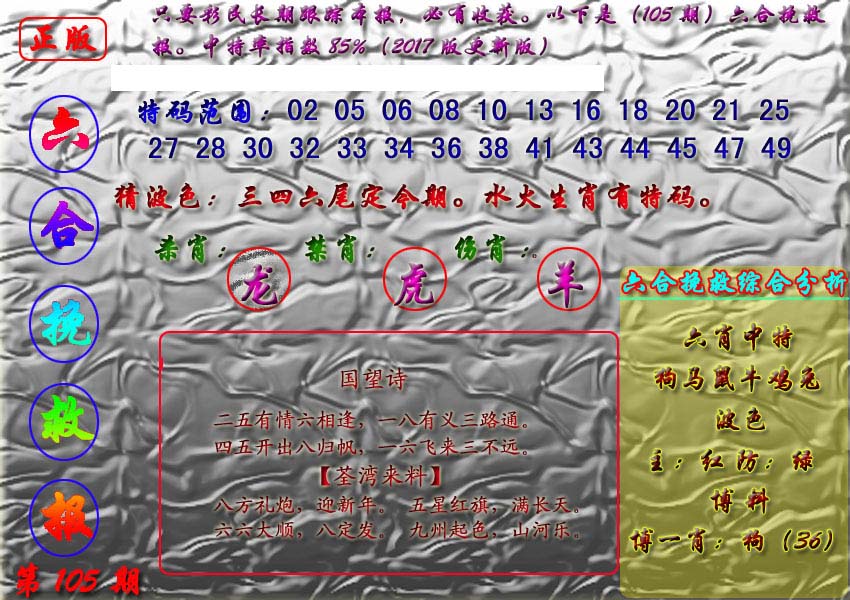 正版
只要彩民长期跟踪本报，必有收获。以下是（105期）六合挽救
报。中特率指数85%（2017版更新版）
六合挽救报
第105期
特码范围：02 05 06 08 10 13 16 18 20 21 25
27 28 30 32 33 34 36 38 41 43 44 45 47 49
猜波色：三四六尾定今期。水火生肖有特码。
杀肖：龙 禁肖：虎 伤肖：。羊
国望诗
二五有情六相逢，一八有义三路通。
四五开出八归帆，一六飞来三不远。
【荃湾来料】
八方礼炮，迎新年。 五星红旗，满长天。
六六大顺，八定发。 九州起色，山河乐。
六合挽救综合分析
六肖中特
狗马鼠牛鸡兔
波色
主：红 防：绿
博料
博一肖：狗（36）